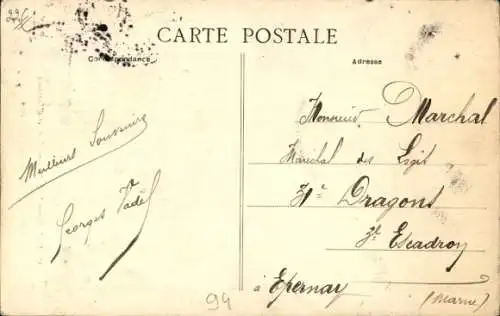 CARTE POSTALE
Correspondance
Adresse
Meilleurs Souvenirs
Georges
Monsieur Marchal
Maréchal des Logis
31e Dragons
3e Escadron
à Epernay
(Marne)
94